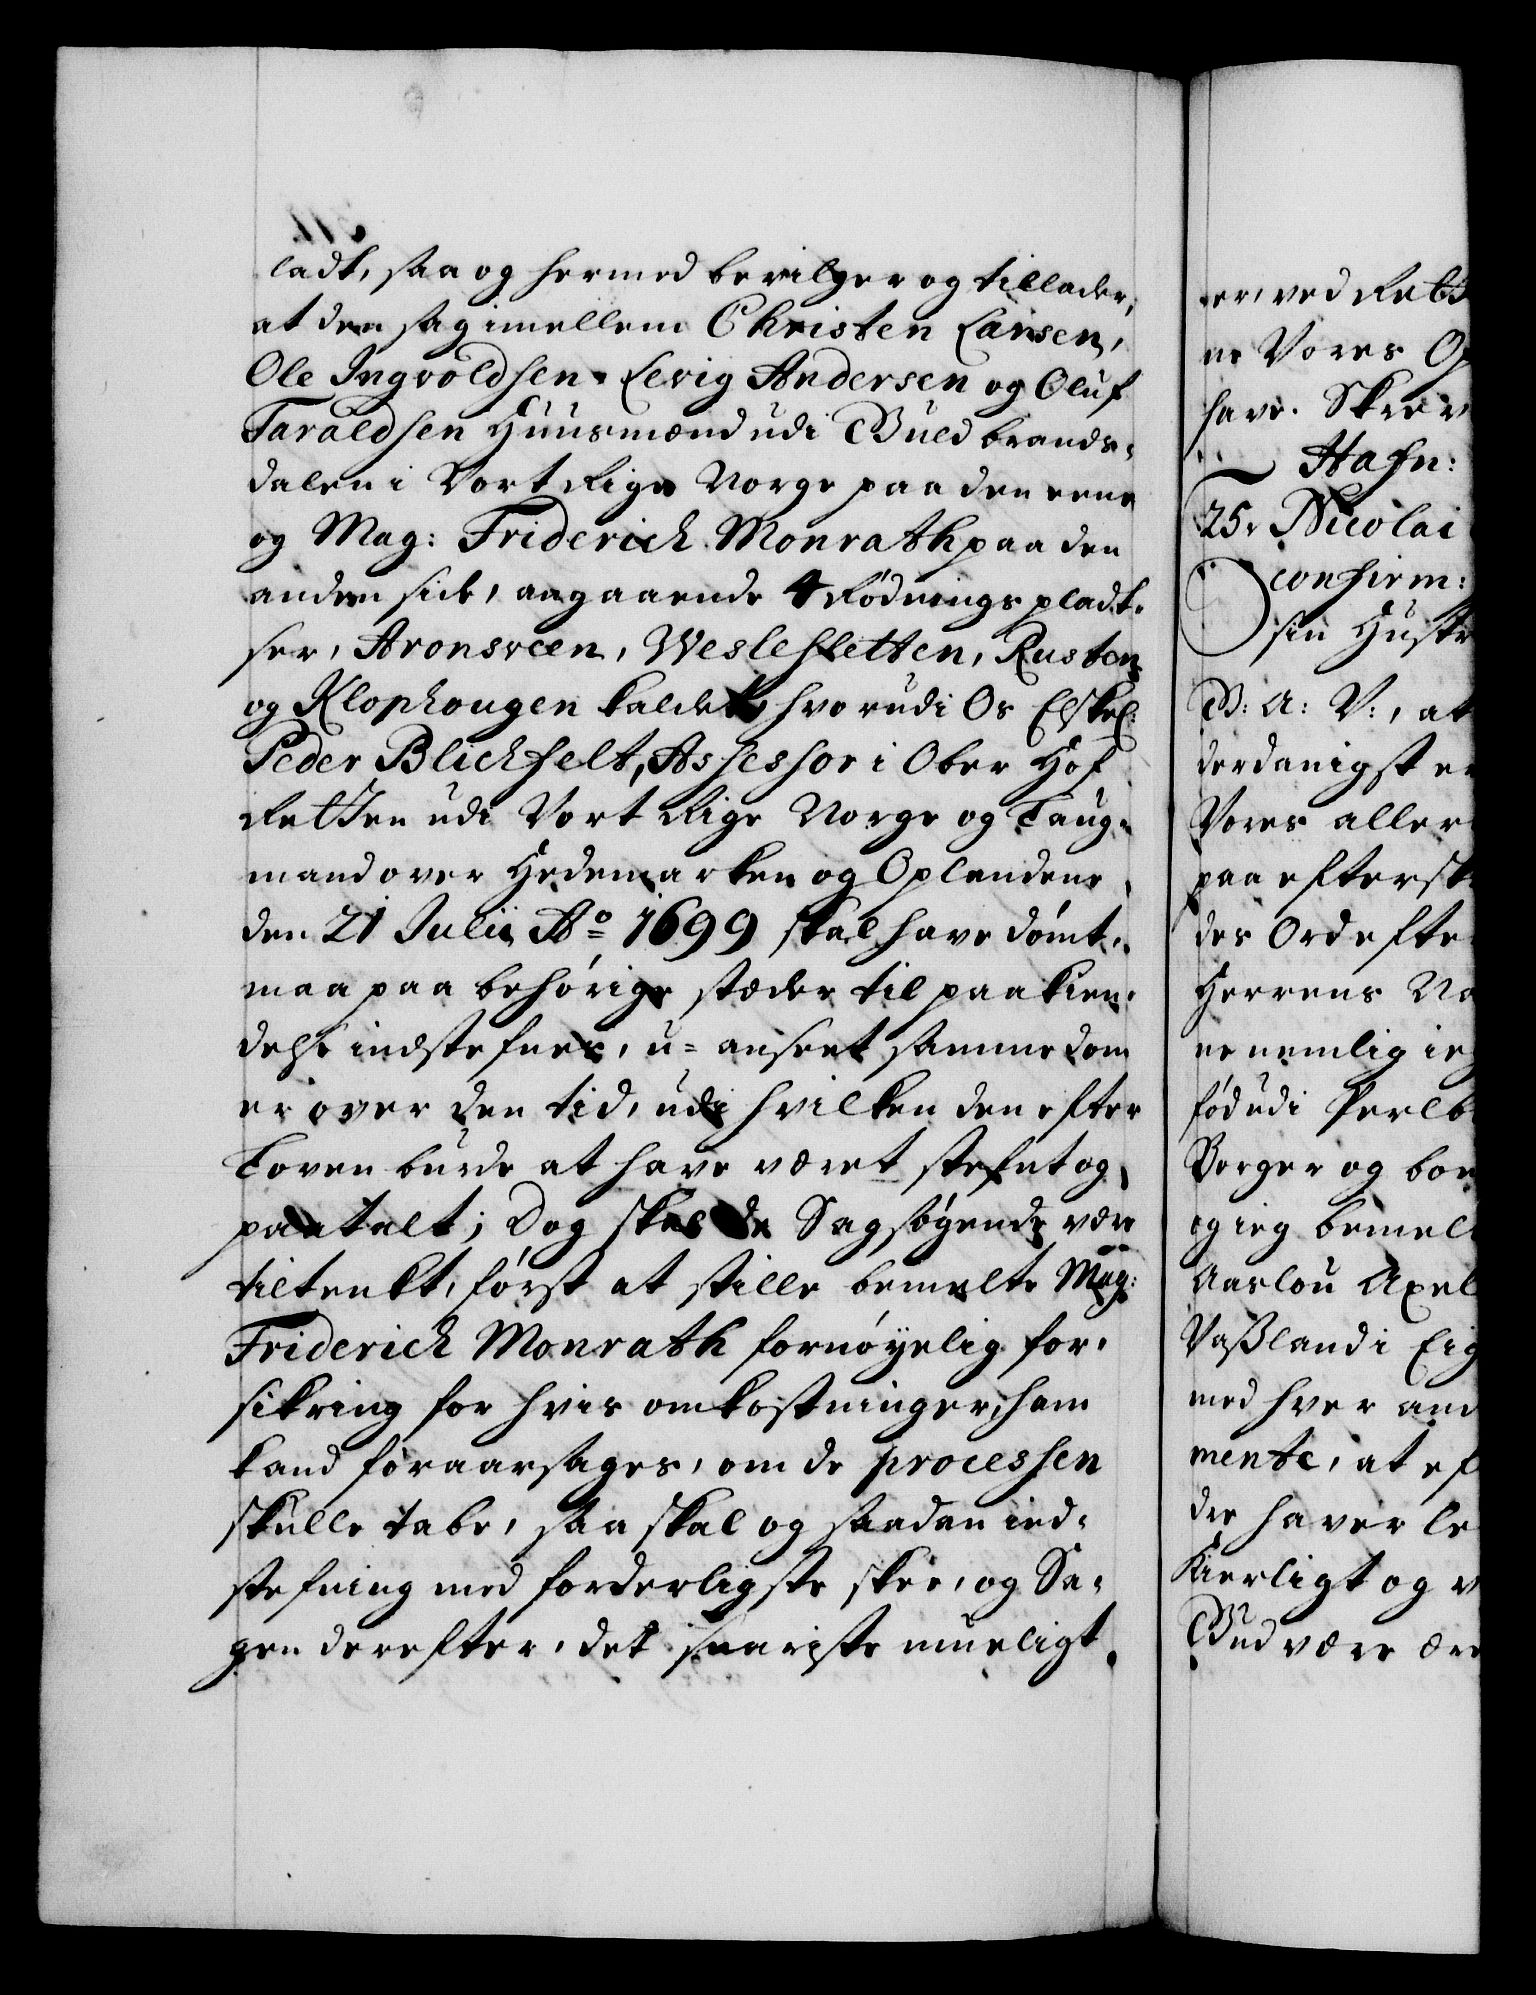 ladt, saa og hermed bevilger og tillader,
at den sag imellem Christen Larsen,
Ole Ingvoldsen, Levig Andersen og Oluf
Taraldsen Huusmænd udi Guldbrands-
dalen i Vort Rige Norge paa den eene
og Mag: Friderich Monrath paa den
anden side, angaaende 4 Rødnings pladt-
ser, Aronsveen, Weslesletten, Rusten
og Klophougen kaldet, hvorudi Os Elskel:
Peder Blichfelt, Assessor i Ober Hof
Retten udi Vort Rige Norge og Laug-
mand over Hedemarken og Oplandene,
den 21 Julii Ao 1699 skal have dømt,
maa paa behørige stæder til paakien-
delse indstefnes, u-anseet samme dom
er over den tid, udi hvilken den efter
Loven burde at have været stefnt og
paatalt; Dog skal de Sagsøgende være
tiltenkt, først at stille bemelte Mag:
Friderich Monrath fornøyelig for-
sikring for hvis omkostninger, ham
kand foraarsages, om de processen
skulle tabe, saa skal og saadan ind-
stefning med forderligste skee, og Sa-
gen derefter, det snariste mueligt,
er, ved Rett
ne Vores O
have. Skrev
Hafn:
25. Nicolai
confirm:
sin Hustr
G: A: V:, at
derdanigst er
Vores aller
paa eftersk
des Ord efte
Herrens Na
ne nemlig ieg
fød udi Perlb
Borger og bo
og ieg bemel
Aaslou Axel
Vaßland i Eig
med hver and
mente, at ef
der haver le
Kierligt og v
Gud være ære